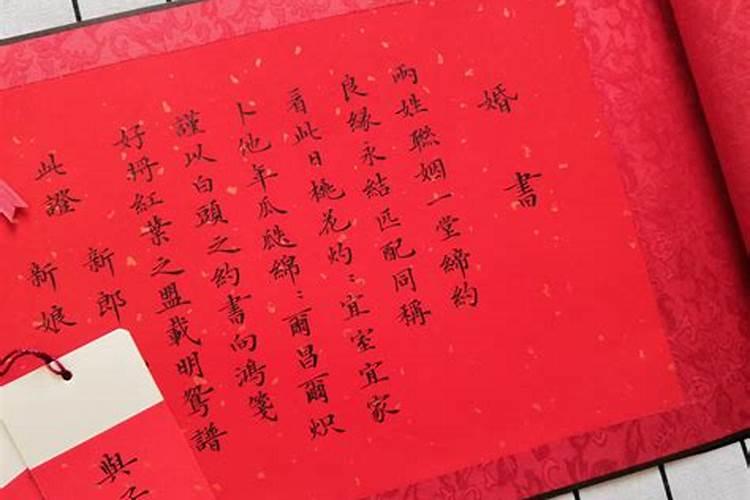 婚書
兩姓聯姻一堂締約
良緣永結匹配同稱
看此日桃花灼:宜室宜家
卜他年瓜瓞綿:爾昌爾熾
謹以白頭之約書向鴻箋
好將紅葉之盟載明鴛譜
此證
新郎
新娘
與子